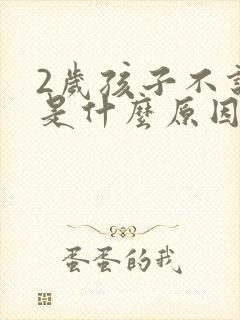 2歲孩子不
是什麼原因
蛋蛋的我